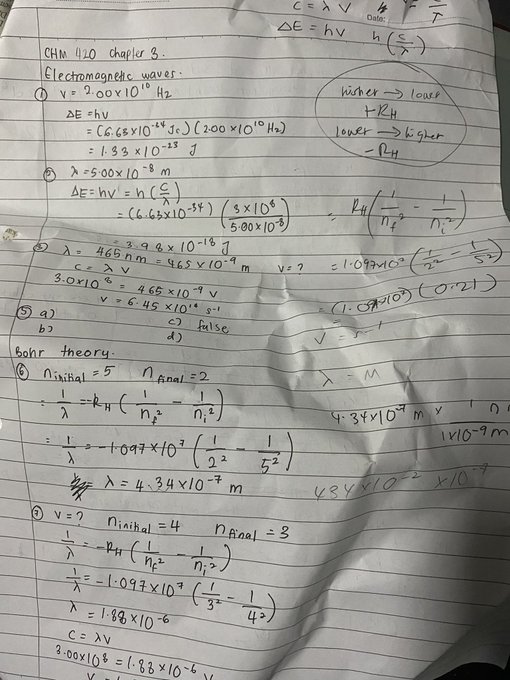 c = λ v
Date:
ΔE = hv h(c/λ)
CHM 420 chapter 3.
Electromagnetic waves.
① v = 2.00 x 10^10 Hz
ΔE = hv
= (6.63 x 10^-34 Js)(2.00 x 10^10 Hz)
= 1.33 x 10^-23 J
higher → lower
+RH
lower → higher
-RH
② λ = 5.00 x 10^-8 m
ΔE = hv = h(c/λ)
= (6.63 x 10^-34) (3 x 10^8 / 5.00 x 10^-8)
= 3.98 x 10^-18 J
= RH (1/nf^2 - 1/ni^2)
③ λ = 465 nm = 465 x 10^-9 m v = ?
c = λ v
3.0 x 10^8 = 465 x 10^-9 v
v = 6.45 x 10^14 s^-1
= 1.097 x 10^7 (1/2^2 - 1/5^2)
= (1.097 x 10^7) (0.21)
v = s^-1
λ = M
⑤ a) c) false
b) d)
Bohr theory.
⑥ n initial = 5 n final = 2
= 1/λ = -RH (1/nf^2 - 1/ni^2)
= 1/λ = -1.097 x 10^7 (1/2^2 - 1/5^2)
λ = 4.34 x 10^-7 m
4.34 x 10^-7 m x 1 n
1 x 10^-9 m
434 x 10^-2 x 10^-7
⑦ v = ? n initial = 4 n final = 3
1/λ = -RH (1/nf^2 - 1/ni^2)
1/λ = -1.097 x 10^7 (1/3^2 - 1/4^2)
λ = 1.88 x 10^-6
c = λv
3.00 x 10^8 = 1.88 x 10^-6 v